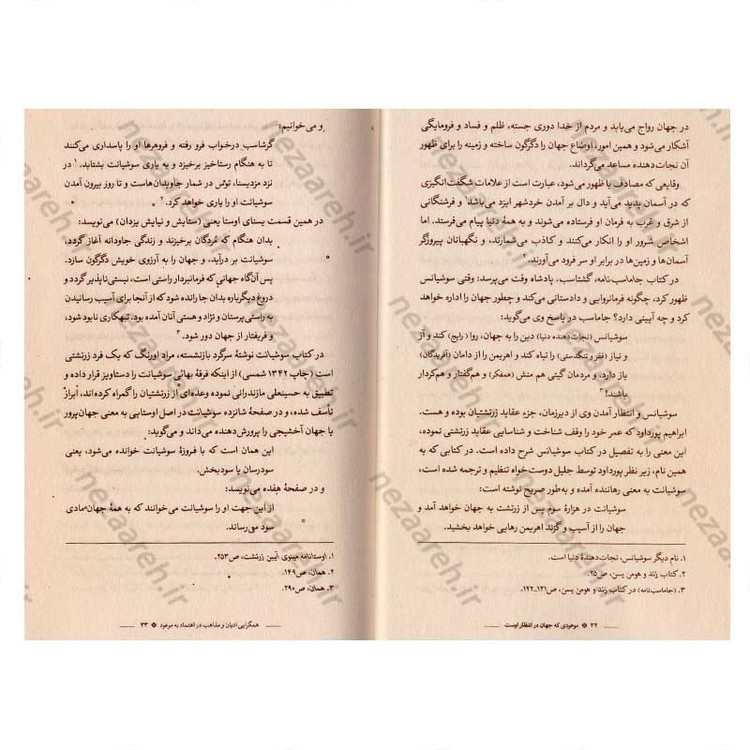 در جهان رواج می‌یابد و مردم از خدا دوری جسته، ظلم و فساد و فرومایگی
آشکار می‌شود و همین امور، اوضاع جهان را دگرگون ساخته و زمینه را برای ظهور
آن نجات‌دهنده مساعد می‌کرداند.
وقایعی که مصادف با ظهور می‌شود، عبارت است از علامات شگفت‌انگیزی
که در آسمان پدید می‌آید و دال بر آمدن خردشهر ایزد می‌باشد و فرشتگانی
از شرق و غرب به فرمان او فرستاده می‌شوند و به همهٔ دنیا پیام می‌فرستد. اما
اشخاص شرور او را انکار می‌کنند و کاذب می‌شمارند، و نگهبانان پیروزگر
آسمان‌ها و زمین‌ها در برابر او سر فرود می‌آورند.۲
در کتاب جاماسب‌نامه، گشتاسب، پادشاه وقت می‌پرسد: وقتی سوشیانس
ظهور کرد، چگونه فرمانروایی و دادستانی می‌کند و چطور جهان را اداره خواهد
کرد و چه آیینی دارد؟ جاماسب در پاسخ وی می‌گوید:
سوشیانس (نجات‌دهنده دنیا) دین را به جهان، روا (رایج) کند و آز
و نیاز (فقر و تنگدستی) را تباه کند و اهریمن را از دامان (آفریدگان)
باز دارد، و مردمان گیتی هم منش (همفکر) و هم‌گفتار و هم‌کردار
باشند!۳
سوشیانس و انتظار آمدن وی از دیرزمان، جزء عقاید زرتشتیان بوده و هست.
ابراهیم پورداود که عمر خود را وقف شناخت و شناسایی عقاید زرتشتی نموده،
این معنی را به تفصیل در کتاب سوشیانس شرح داده است. در کتابی که به
همین نام، زیر نظر پورداود توسط جلیل دوستخواه تنظیم و ترجمه شده است،
سوشیانت به معنی رهاننده آمده و به‌طور صریح نوشته است:
سوشیانت در هزارهٔ سوم پس از زرتشت به جهان خواهد آمد و
جهان را از آسیب و گزند اهریمن رهایی خواهد بخشید.
۱. نام دیگر سوشیانس، نجات‌دهندهٔ دنیا است.
۲. کتاب زند و هومن یسن، ص۲۵.
۳. (جاماسب‌نامه) در کتاب زند و هومن یسن، ص۱۲۱ـ۱۲۲.
۳۲ ※ موعودی که جهان در انتظار اوست
و می‌خوانیم:
گرشاسب درخواب فرو رفته و فروهرها او را پاسداری می‌کنند
تا به هنگام رستاخیز برخیزد و به یاری سوشیانت بشتابد.۱
نزد مزدیسنا، توس در شمار جاویدان‌هاست و تا روز بیرون آمدن
سوشیانت او را یاری خواهد کرد.۲
در همین قسمت یسنای اوستا یعنی (ستایش و نیایش یزدان) می‌نویسد:
بدان هنگام که مُردگان برخیزند و زندگی جاودانه آغاز گردد،
سوشیانت بر درآید، و جهان را به آرزوی خویش دگرگون سازد.
پس آن‌گاه جهانی که فرمانبردار راستی است، نیستی‌ناپذیر گردد و
دروغ دیگرباره بدان جا رانده شود که از آنجا برای آسیب رسانیدن
به راستی‌پرستان و نژاد و هستی آنان آمده بود. تبهکاری نابود شود،
و فریفتار از جهان دور شود.۳
در کتاب سوشیانت نوشتهٔ سرگرد بازنشسته، مراد اورنگ که یک فرد زرتشتی
است (چاپ ۱۳۴۲ شمسی) از اینکه فرقهٔ بهائی سوشیانت را دستاویز قرار داده و
تطبیق به حسینعلی مازندرانی نموده وعده‌ای از زرتشتیان را گمراه کرده‌اند، ابراز
تأسف شده، و در صفحهٔ شانزده سوشیانت در اصل اوستایی به معنی جهان‌پرور
یا جهان آخشیجی را پرورش‌دهنده می‌داند و می‌گوید:
این همان است که با فروزهٔ سوشیانت خوانده می‌شود، یعنی
سودرسان یا سودبخش.
و در صفحهٔ هفده می‌نویسد:
از این جهت او را سوشیانت می‌خوانند که به همهٔ جهان مادی
سود می‌رساند.
۱. اوستانامه مینوی آیین زرتشت، ص۲۵۳.
۲. همان، ص۱۴۹.
۳. همان، ص۲۹۰.
همگرایی ادیان و مذاهب در اعتقاد به موعود ※ ۳۳
nezaareh.ir